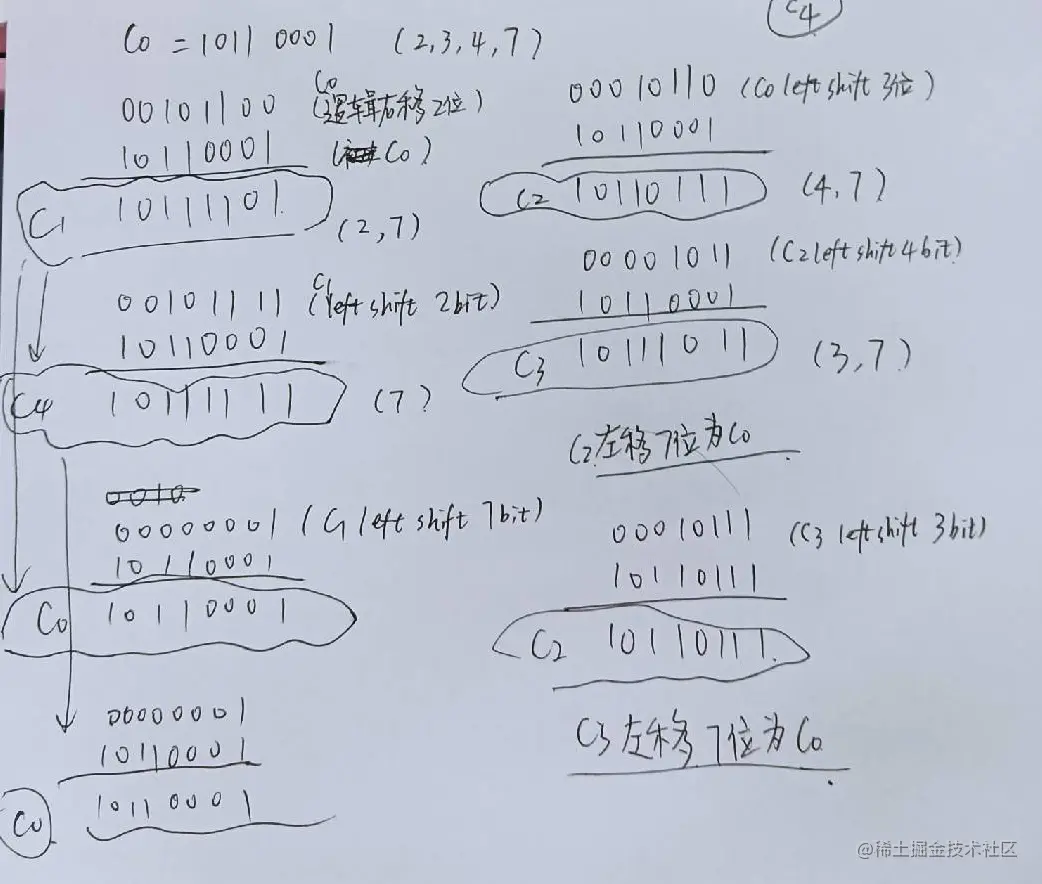 C4
C0 = 1011 0001 (2,3,4,7)
00101100 C0 (逻辑右移2位)
10110001 (C0)
C1 10111101 (2,7)
00101111 C1 (left shift 2bit)
10110001
C4 10111111 (7)
0010
00000001 (C1 left shift 7bit)
10110001
C0 10110001
00000001
10110001
C0 10110001
00010110 (C0 left shift 3位)
10110001
C2 10110111 (4,7)
00001011 (C2 left shift 4bit)
10110001
C3 10111011 (3,7)
C2左移7位为C0
00010111 (C3 left shift 3bit)
10110111
C2 10110111
C3左移7位为C0
@稀土掘金技术社区